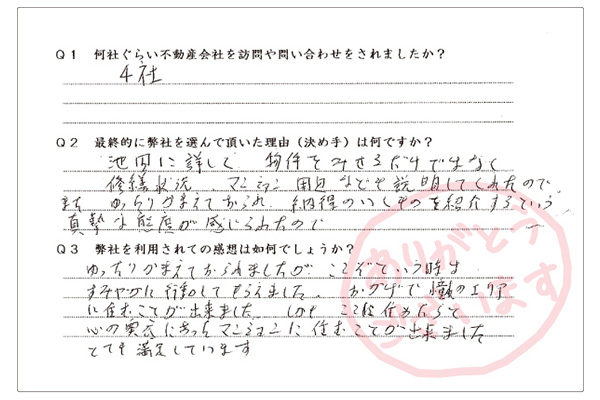 Q1 何社ぐらい不動産会社を訪問や問い合わせをされましたか?
4社
Q2 最終的に弊社を選んで頂いた理由(決め手)は何ですか?
池田に詳しく 物件をみせるだけではなく
修繕状況、マンション周辺なども説明してくれたので
また ゆったりかまえておられ 納得のいくものを紹介するという
真摯な態度が感じられたので
Q3 弊社を利用されての感想は如何でしょうか?
ゆったりかまえておられましたが ここぞという時は
すみやかに行動してもらえました、おかげで憧れのエリア
に住むことが出来ました しかも ここに住めたらと
心の奥底にあったマンションに住むことが出来ました
とても満足しています
ありがとう
ございます